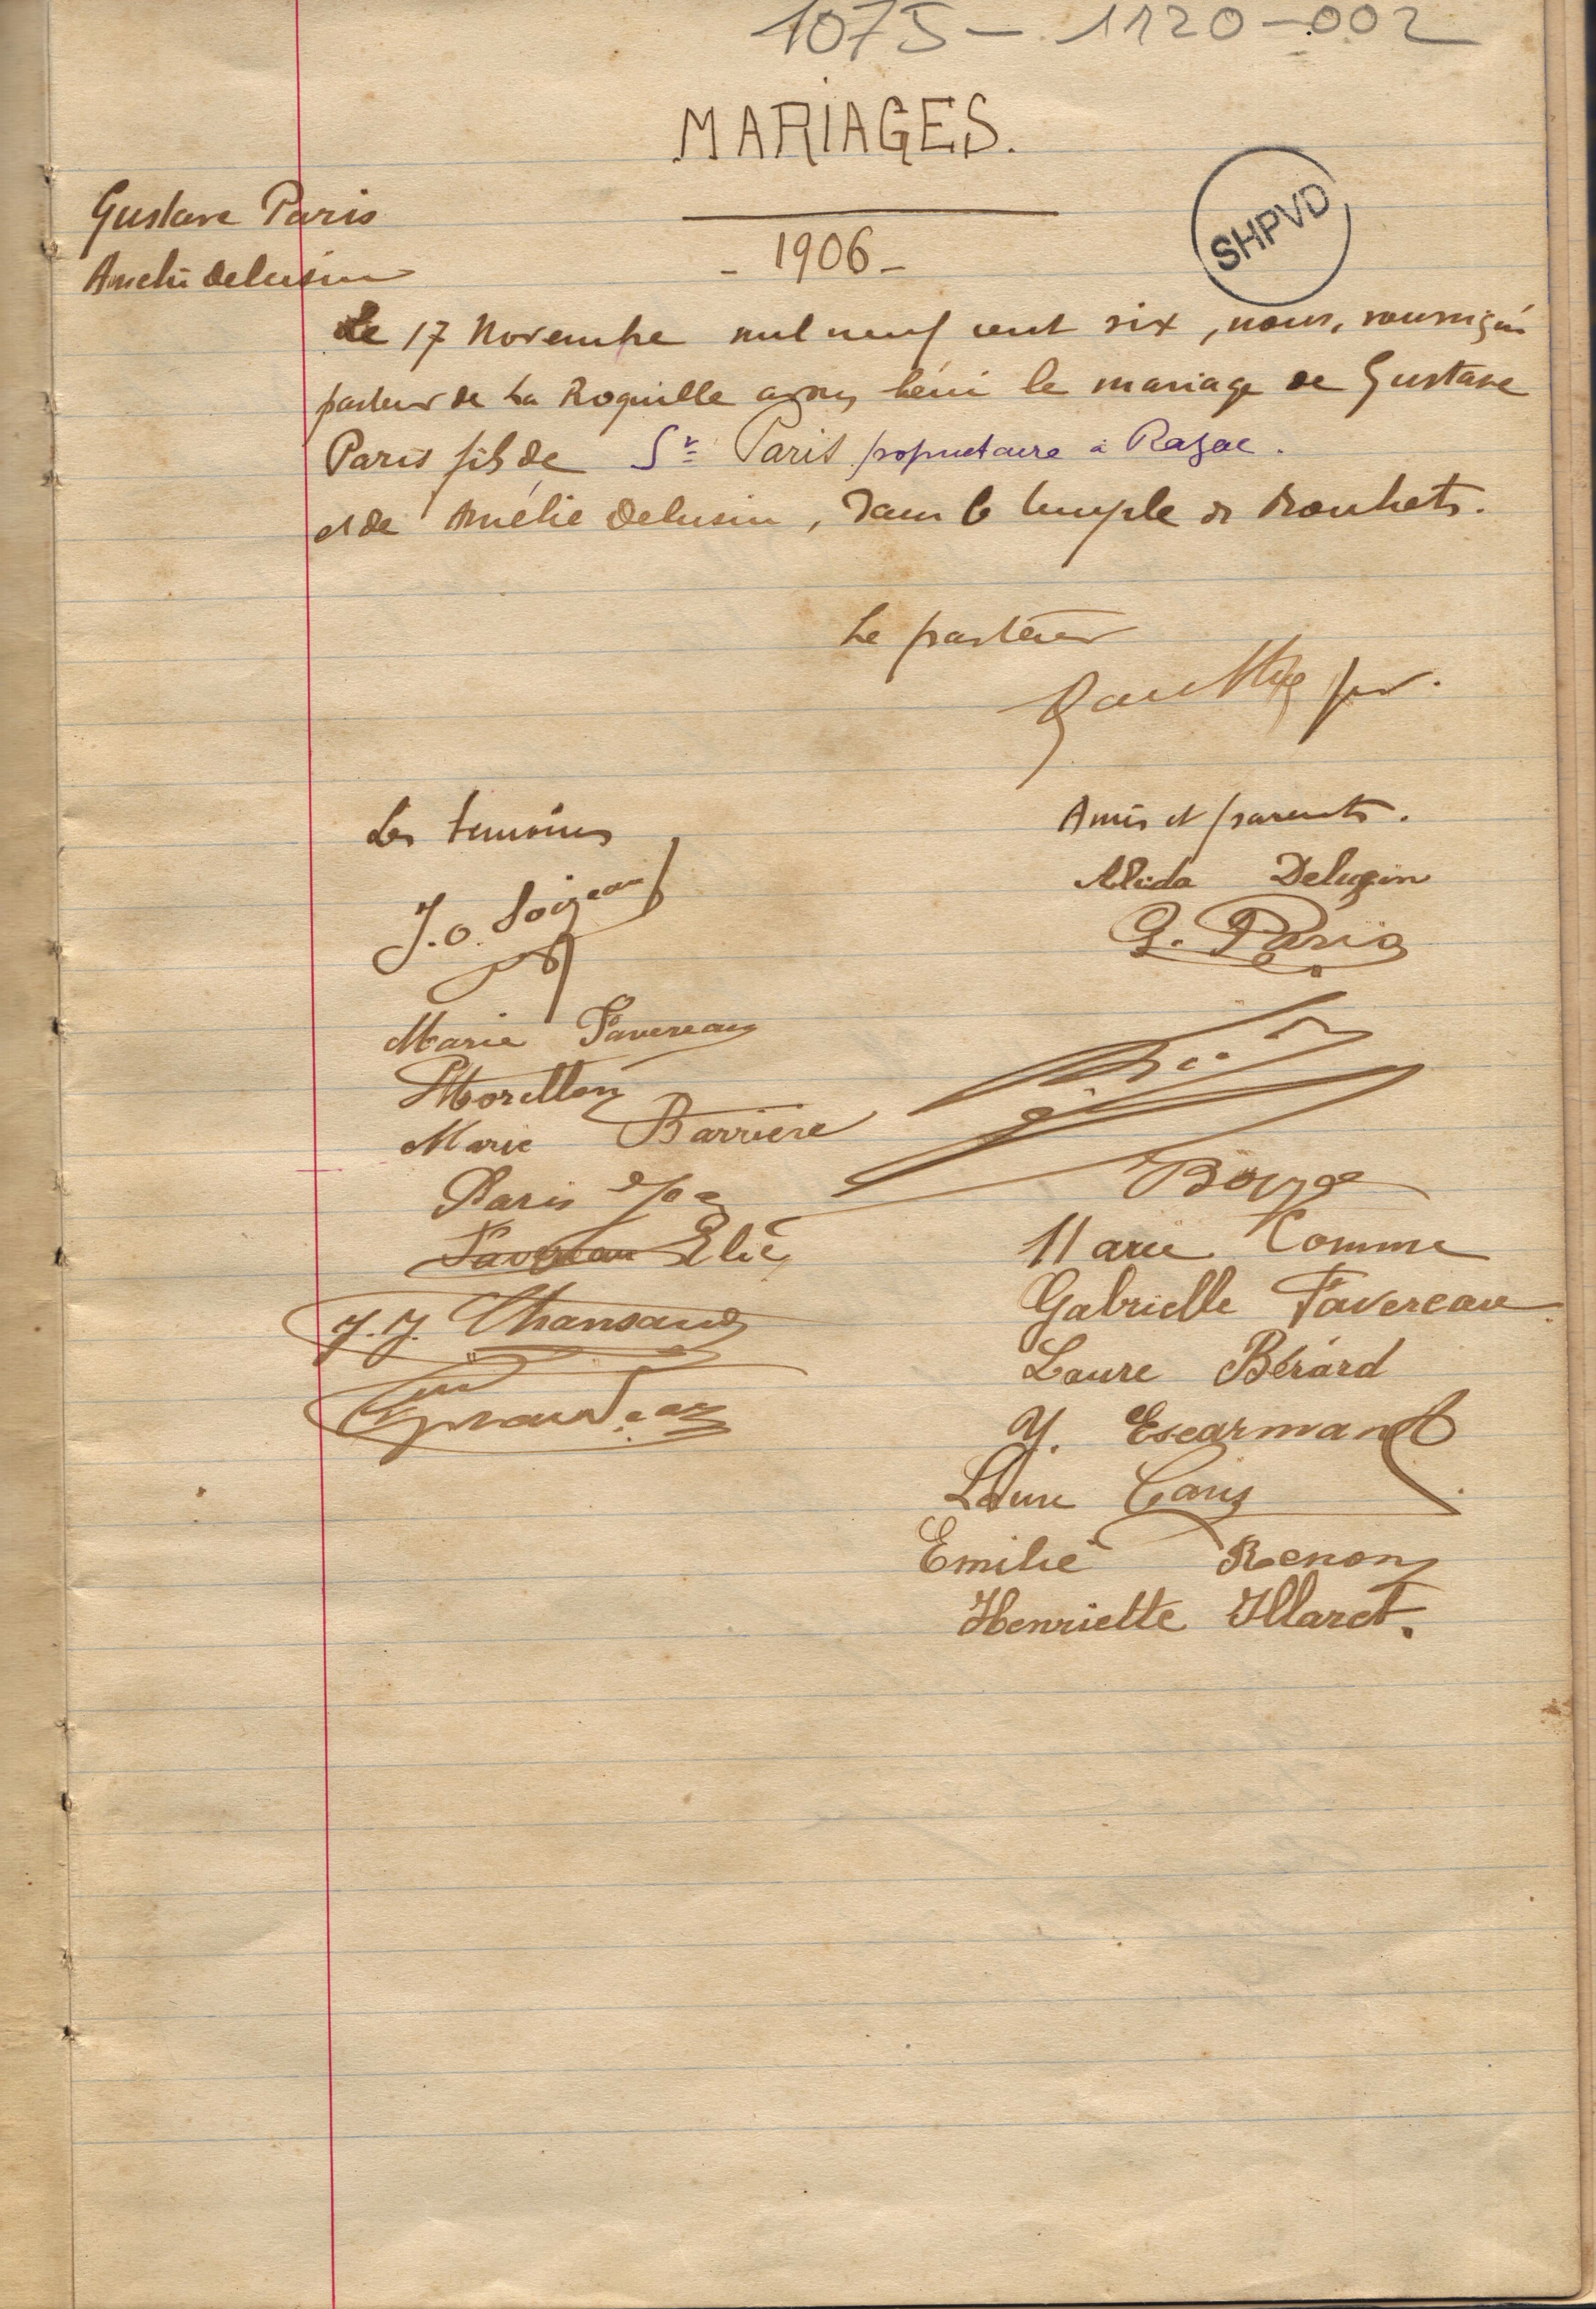 1075 - 1120 - 002
MARIAGES.
SHPVD
Gustave Paris
Amélie Delusin
- 1906 -
Le 17 Novembre mil neuf cent six, nous, soussigné
pasteur de La Roquille avons béni le mariage de Gustave
Paris fils de Sr Paris propriétaire à Razac.
et de Amélie Delusin, dans le temple de
Le pasteur
Les temoins
Amis et parents.
Alida Delugin
J. O.
G. Paris
Marie Favereau
Morillon
Marie Barrière
Paris
Boyze
Favereau Elie
Marie Comme
J. J. Chansaud
Gabrielle Favereau
Laure Bérard
Y. Escarmant
Emilie Renon
Henriette Illaret.